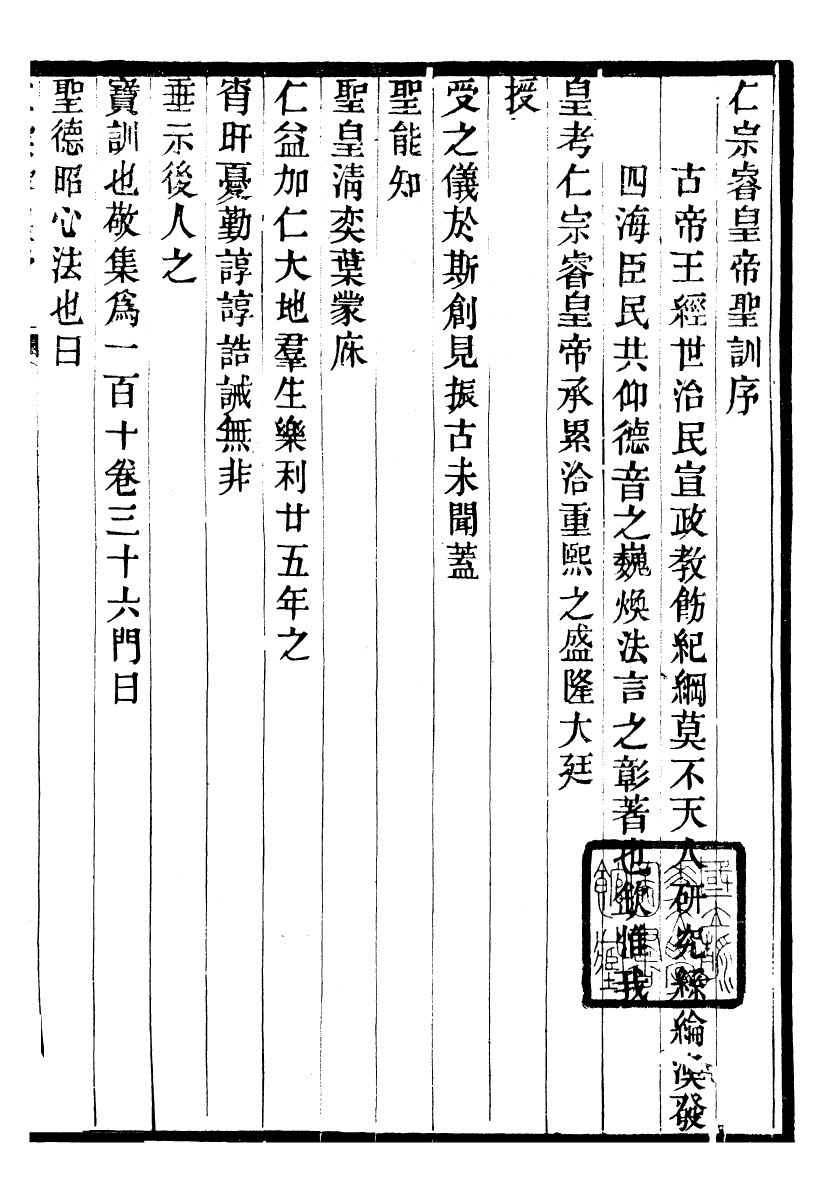 仁宗睿皇帝聖訓序
古帝王經世治民宣政教飭紀綱莫不天人研究絲綸渙發
四海臣民共仰德音之巍煥法言之彰著也欽惟我
皇考仁宗睿皇帝承累洽重熙之盛隆大廷
授
受之儀於斯創見振古未聞蓋
聖能知
聖皇淸奕葉蒙庥
仁益加仁大地羣生樂利廿五年之
宵旰憂勤諄諄誥誡無非
垂示後人之
寶訓也敬集爲一百十卷三十六門曰
聖德昭心法也曰